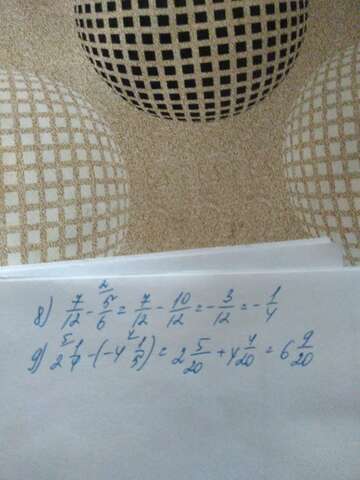 8) 7/12 - 5/6 ² = 7/12 - 10/12 = - 3/12 = - 1/4
9) 2 1/4 ⁵ - (-4 1/5 ⁴) = 2 5/20 + 4 4/20 = 6 9/20